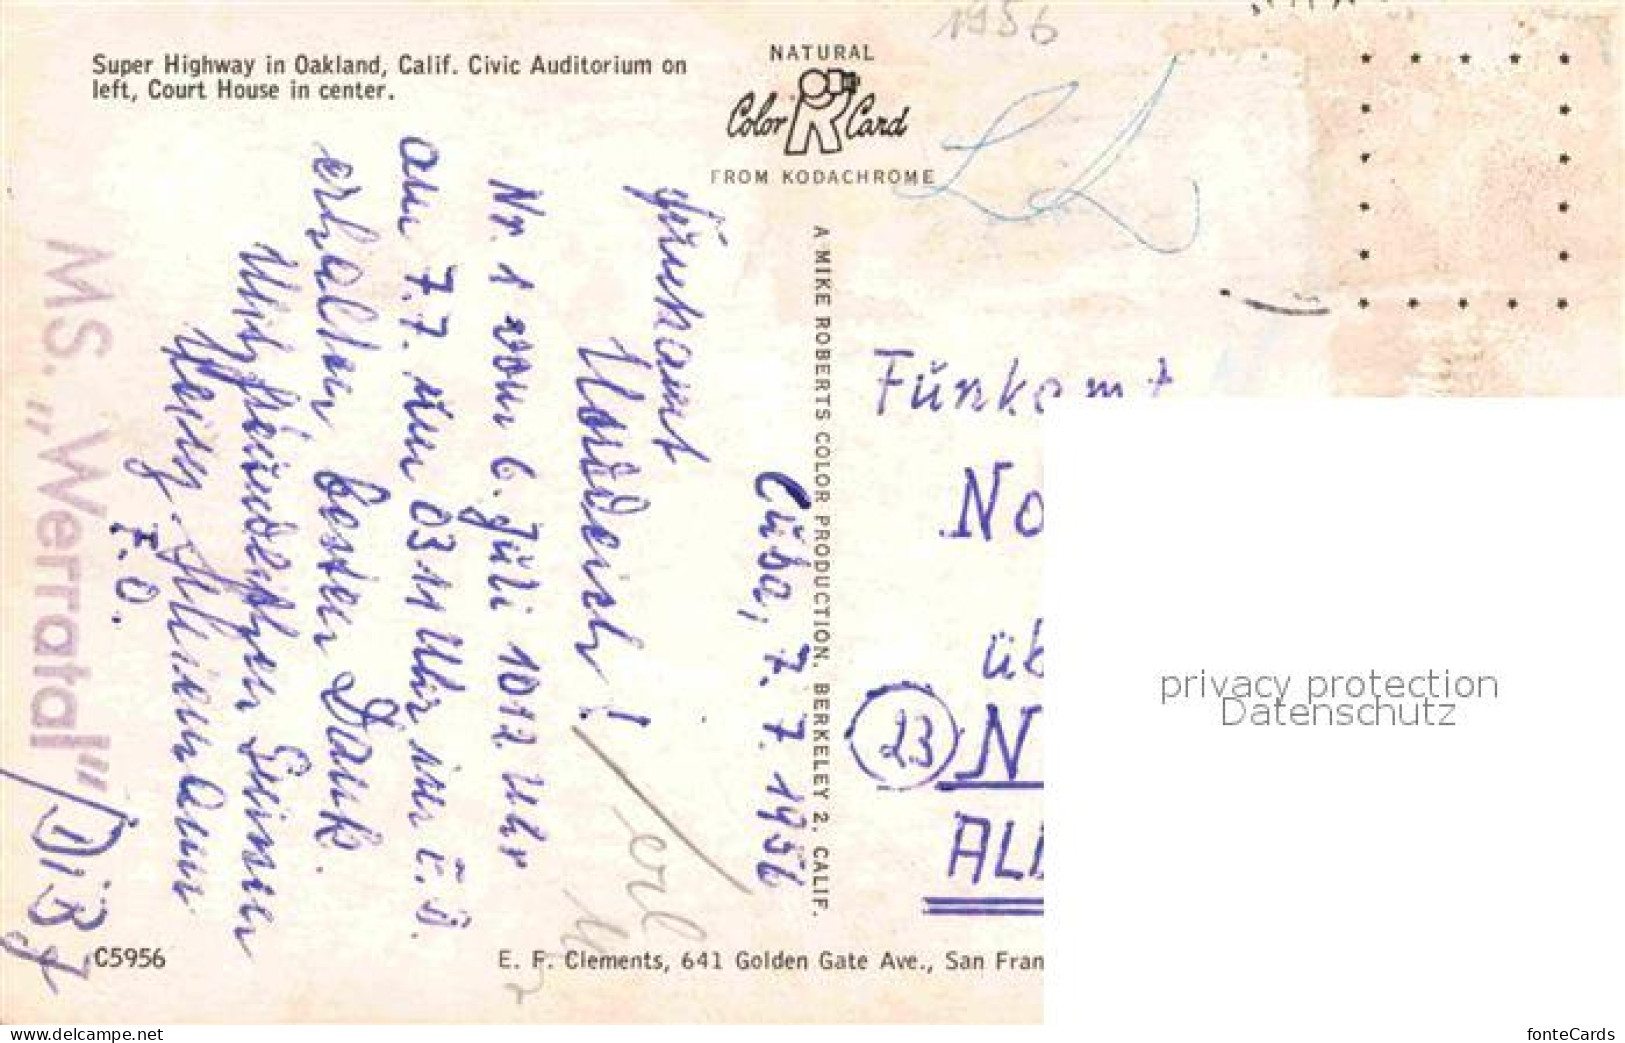 1956
Super Highway in Oakland, Calif. Civic Auditorium on
left, Court House in center.
NATURAL
Color Card
FROM KODACHROME
A MIKE ROBERTS COLOR PRODUCTION, BERKELEY 2, CALIF.
Cuba, 7. 7. 1956
Funkamt
Norddeich!
Nr. 1 vom 6. Juli 1012 Uhr
am 7.7. um 0311 Uhr
erhalten besten Dank.
Mit freundlichen
Heinz
F.O.
MS. „Werratal"
DJBZ
Funkamt
No
üb
23 N
ALL
C5956
E. F. Clements, 641 Golden Gate Ave., San Fran
erl
privacy protection
Datenschutz
www.delcampe.net
fonteCards